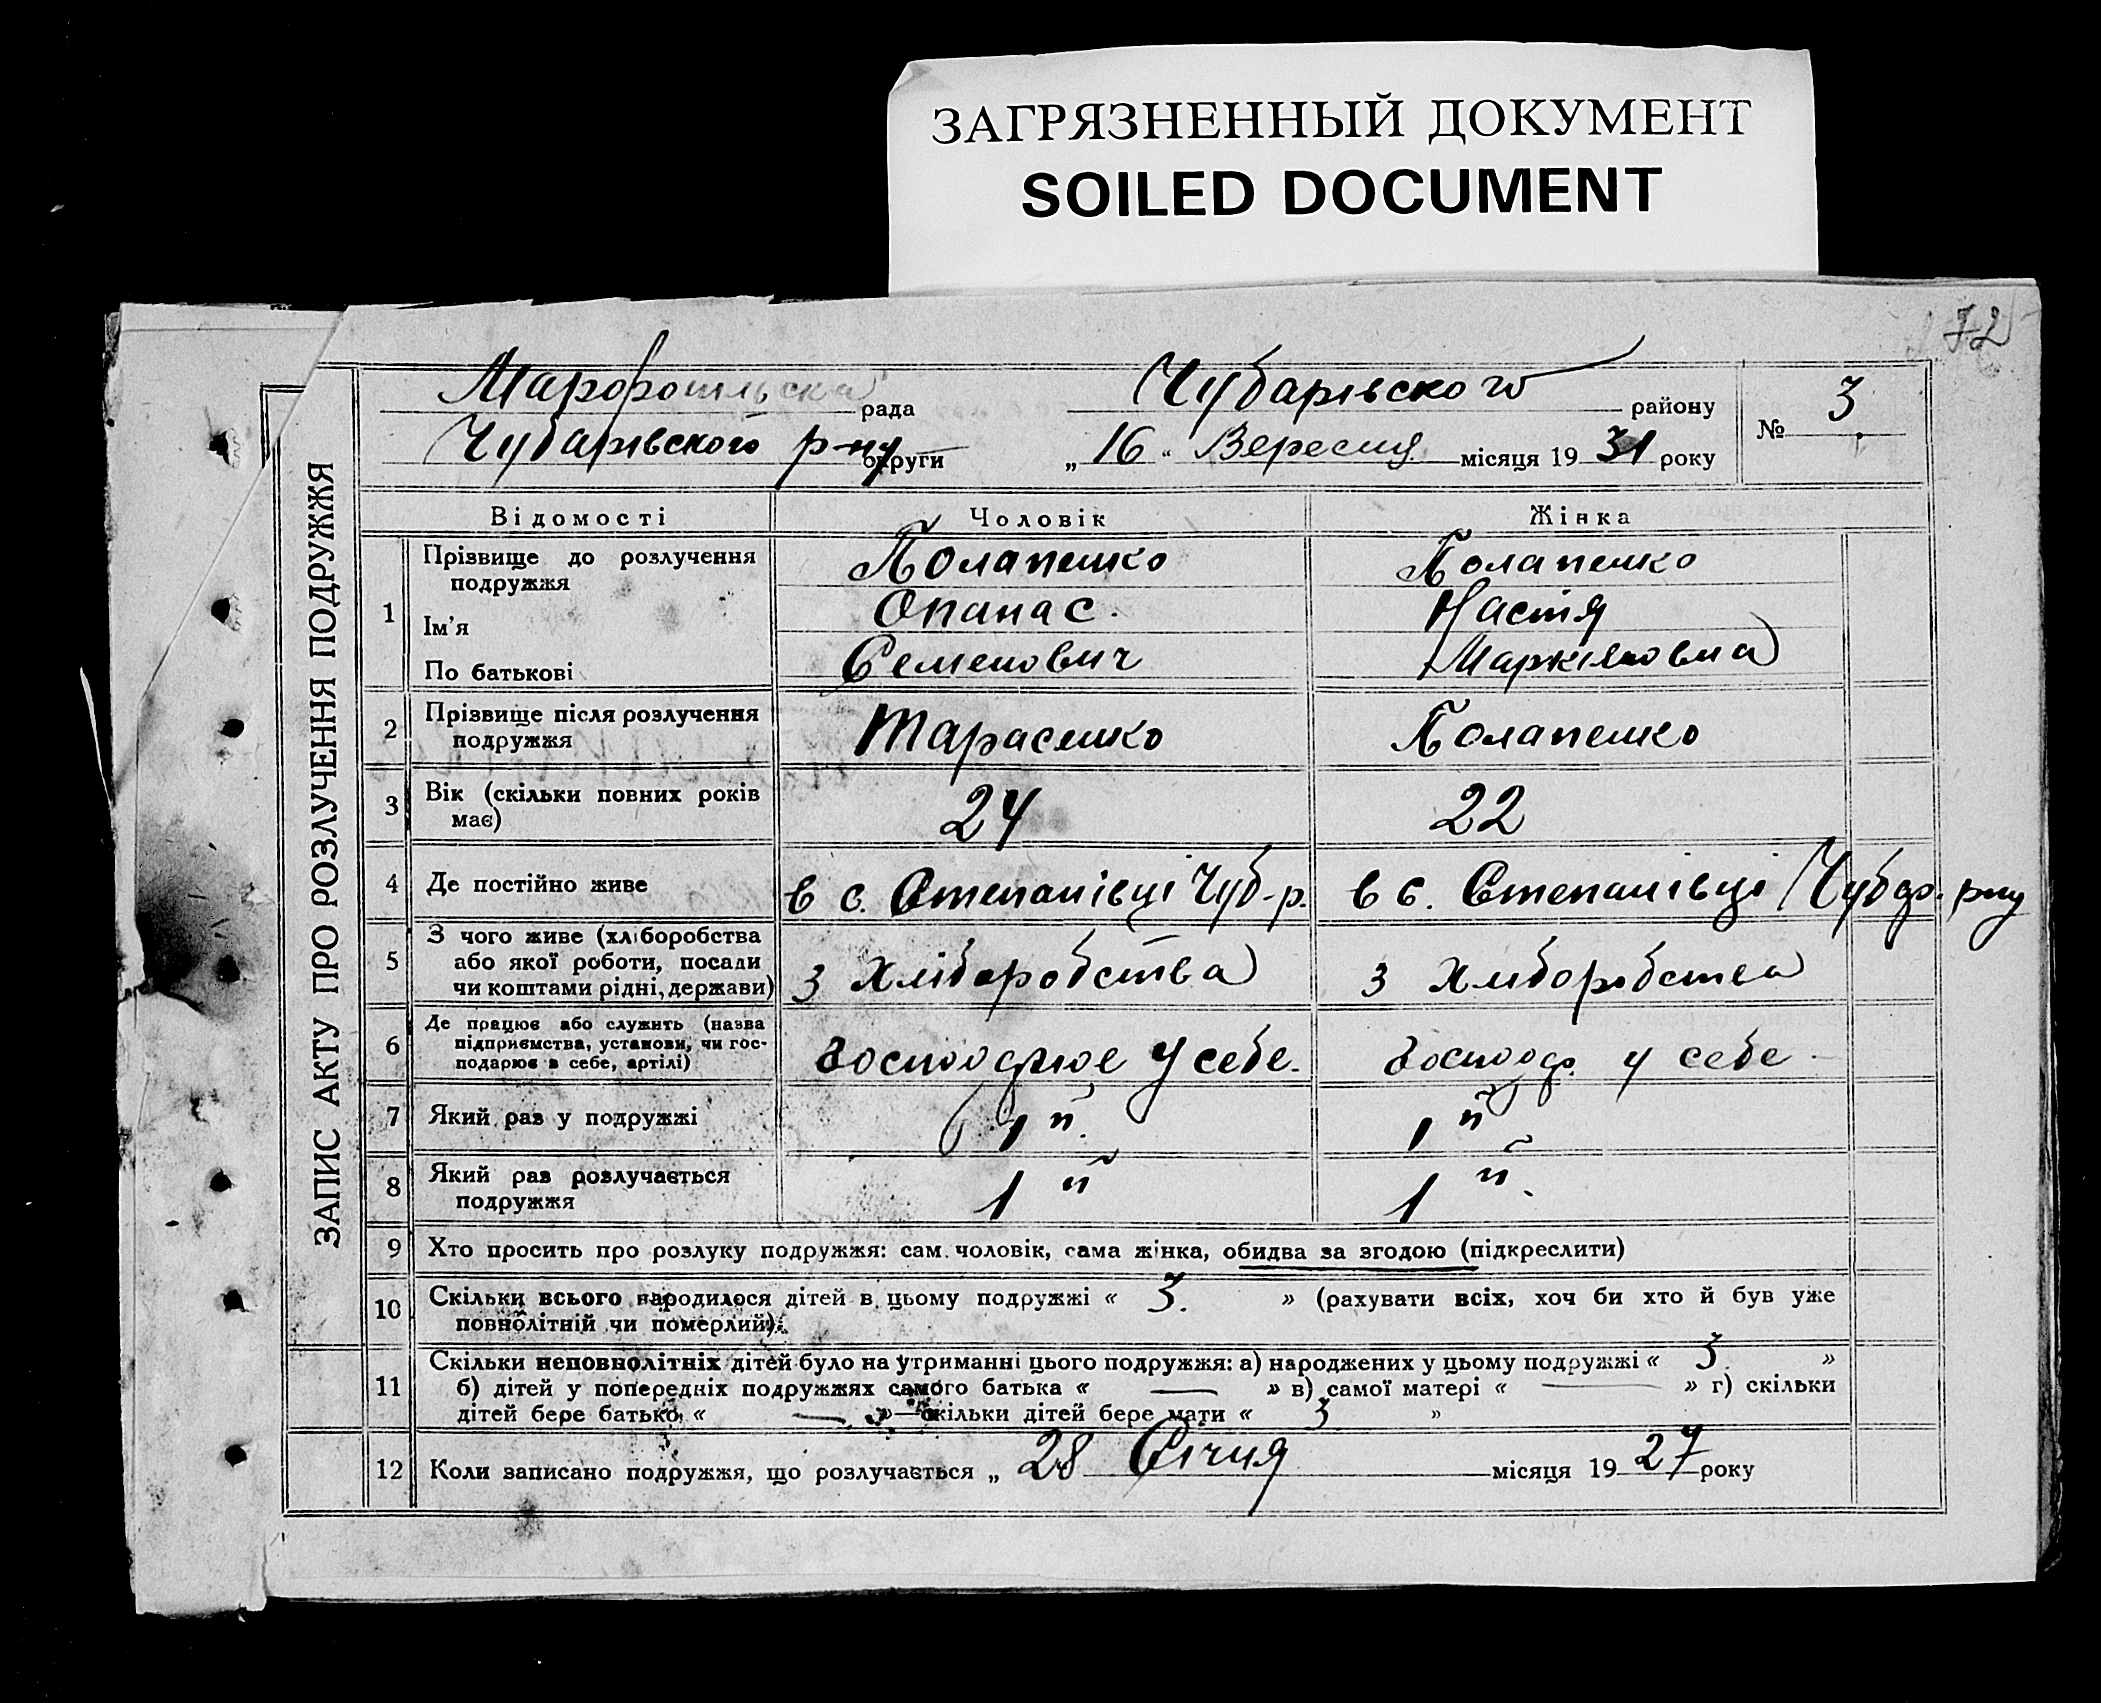 ЗАГРЯЗНЕННЫЙ ДОКУМЕНТ
SOILED DOCUMENT
72
ЗАПИС АКТУ ПРО РОЗЛУЧЕННЯ ПОДРУЖЖЯ
рада Чубарівського району № 3
Чубарівського р-ну округи „16" Вересня місяця 1931 року
Відомості Чоловік Жінка
1 Прізвище до розлучення подружжя Полапенко Полапенко
Ім'я Опанас Настя
По батькові Семенович Маркіяновна
2 Прізвище після розлучення подружжя Тарасенко Полапенко
3 Вік (скільки повних років має) 24 22
4 Де постійно живе в с. Степанівці Чуб-р. в с. Степанівці Чубар. р-ну
5 З чого живе (хліборобства або якої роботи, посади чи коштами рідні, держави) з хліборобства з хліборобства
6 Де працює або служить (назва підприємства, установи, чи господарює в себе, артілі) господарює у себе. господар. у себе
7 Який раз у подружжі 1й 1й
8 Який раз розлучається подружжя 1й 1й
9 Хто просить про розлуку подружжя: сам чоловік, сама жінка, обидва за згодою (підкреслити)
10 Скільки всього народилося дітей в цьому подружжі « 3. » (рахувати всіх, хоч би хто й був уже
повнолітній чи померлий).
11 Скільки неповнолітніх дітей було на утриманні цього подружжя: а) народжених у цьому подружжі « 3. »
б) дітей у попередніх подружжях самого батька « — » в) самої матері « — » г) скільки
дітей бере батько « — » — скільки дітей бере мати « 3 »
12 Коли записано подружжя, що розлучається „ 28 Січня місяця 1927 року